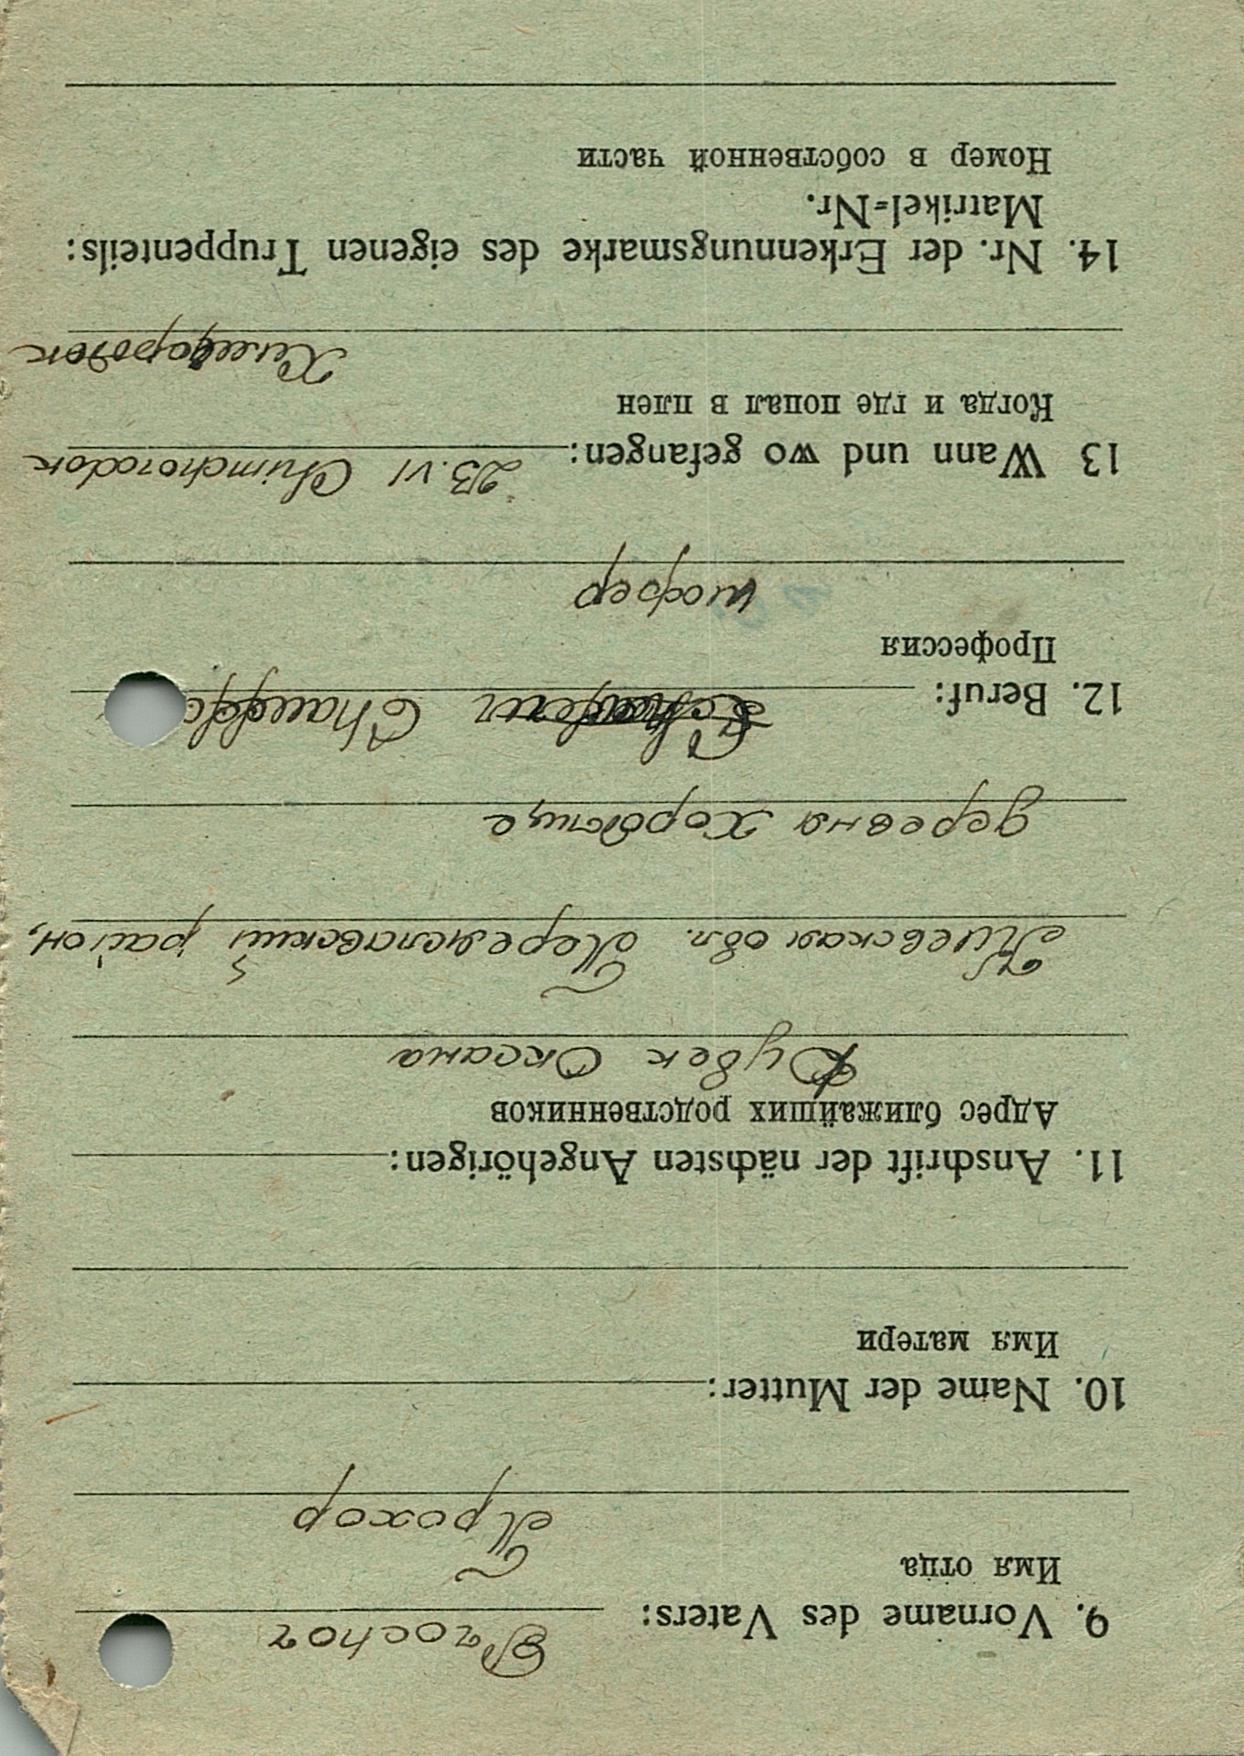 9. Vorname des Vaters: Prochor
Имя отца
Прохор
10. Name der Mutter:
Имя матери
11. Anschrift der nächsten Angehörigen:
Адрес ближайших родственников
Дубек Оксана
Киевская обл. Переяславский район,
деревня
12. Beruf: Chauff
Профессия
шофер
13 Wann und wo gefangen: 23.VI Chimchoradok
Когда и где попал в плен
14. Nr. der Erkennungsmarke des eigenen Truppenteils:
Matrikel=Nr.
Номер в собственной части